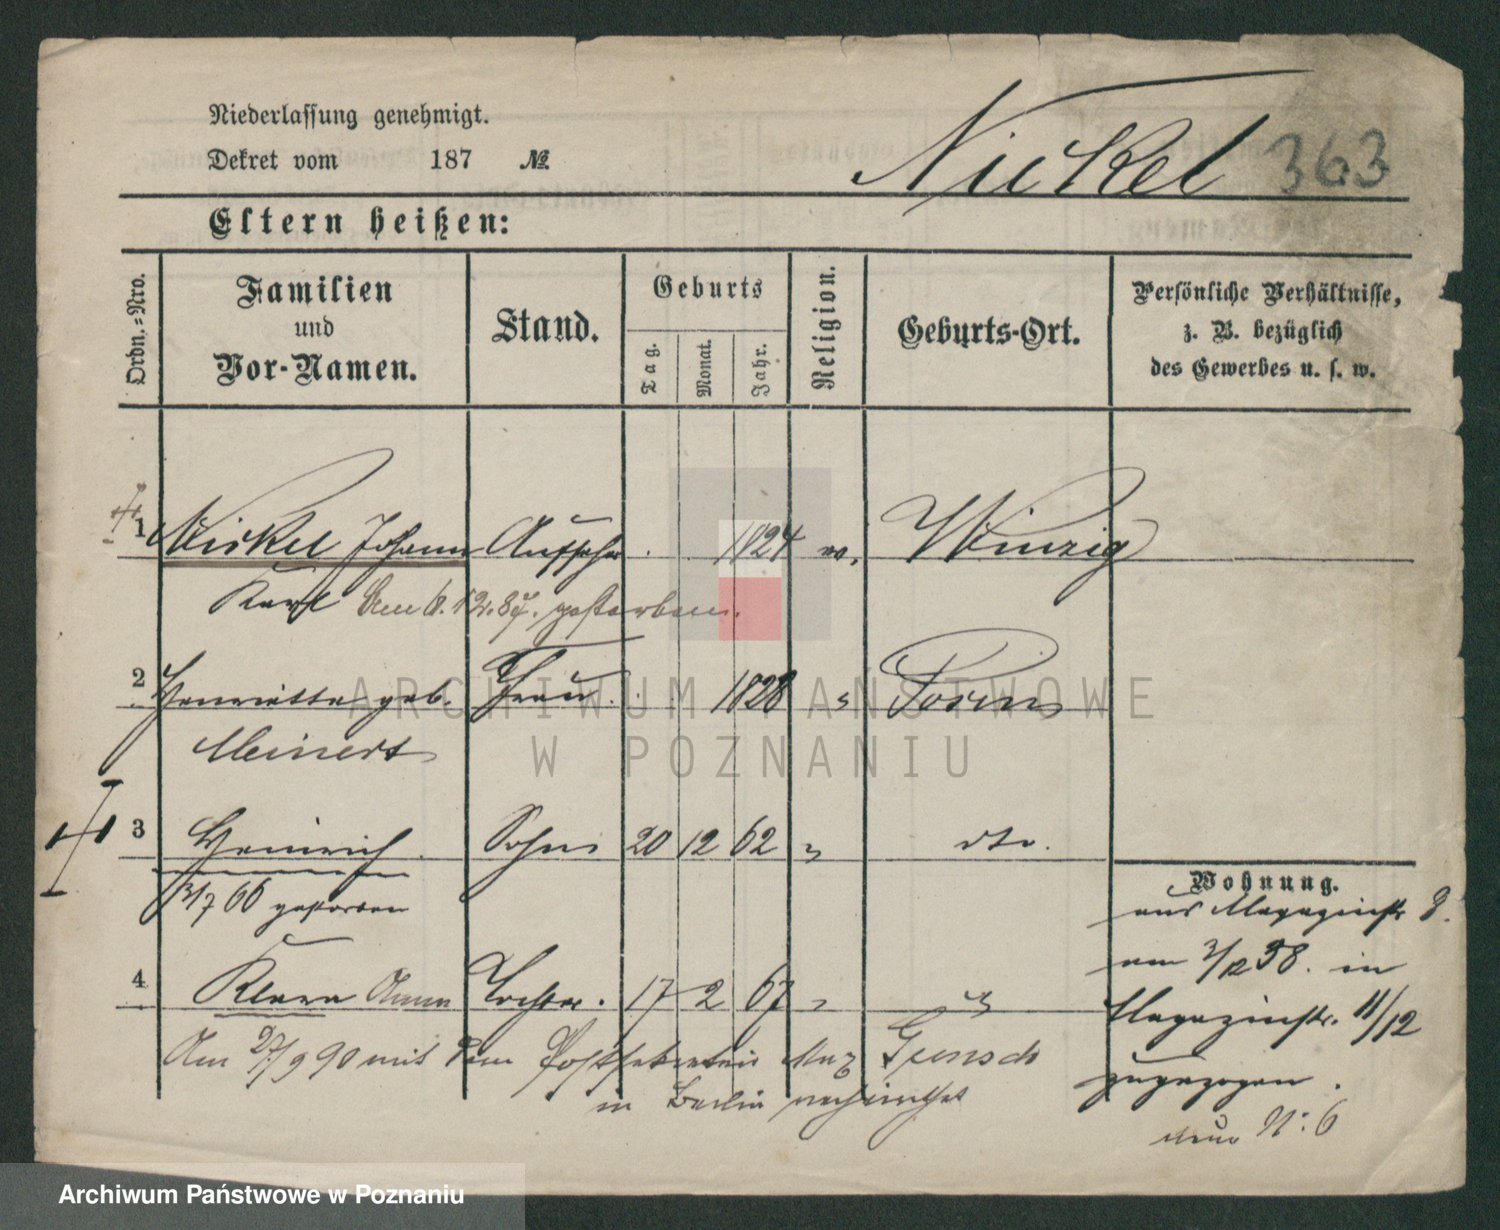 Niederlassung genehmigt.
Dekret vom 187 №
Nickel 363
Eltern heißen:
Ordn.-Nro.
Familien
und
Vor-Namen.
Stand.
Geburts
Tag.
Monat.
Jahr.
Religion.
Geburts-Ort.
Persönliche Verhältnisse,
z. B. bezüglich
des Gewerbes u. s. w.
1 Nickel Johann Aufseher 1824 Winzig
Karl Am 6.12.87. gestorben.
2 Henriette geb. Frau 1828 Posen
Meinert
3 Heinrich Sohn 20 12 62 " dto.
/7 66 gestorben
4 Klara Anna Tochter. 17 2 67 " "
Am 27/9 90 mit dem Postsekretär Max
in Berlin verheirathet
Wohnung.
aus Magazinstr 8.
am 3/12 38. in
Magazinstr. 11/12
zugezogen.
neue N: 6
ARCHIWUM PAŃSTWOWE
W POZNANIU
Archiwum Państwowe w Poznaniu